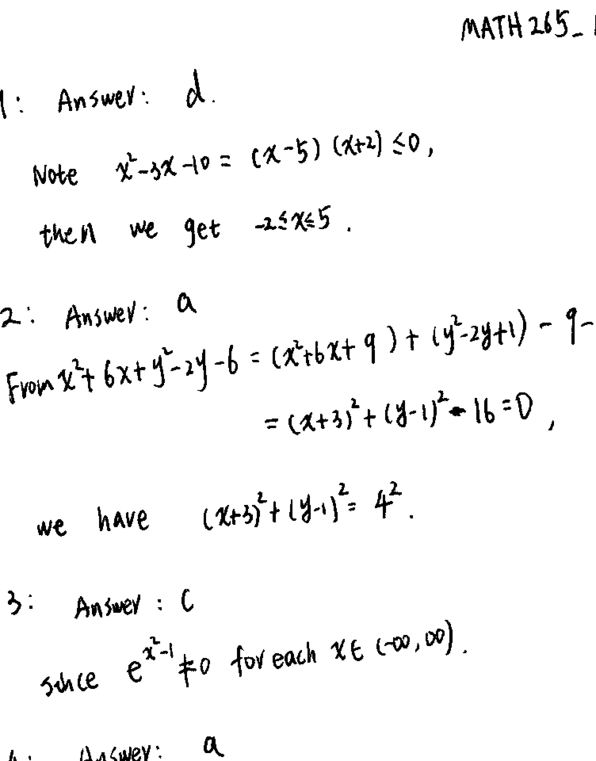 MATH 265_
1: Answer: d.
Note x²-3x-10 = (x-5) (x+2) ≤0,
then we get -2≤x≤5.
2: Answer: a
From x²+6x+y²-2y-6 = (x²+6x+9)+(y²-2y+1)-9-
=(x+3)²+(y-1)²-16=0,
we have (x+3)²+(y-1)²=4².
3: Answer: C
since e^{x²-1}≠0 for each x∈(-∞,∞).
Answer: a